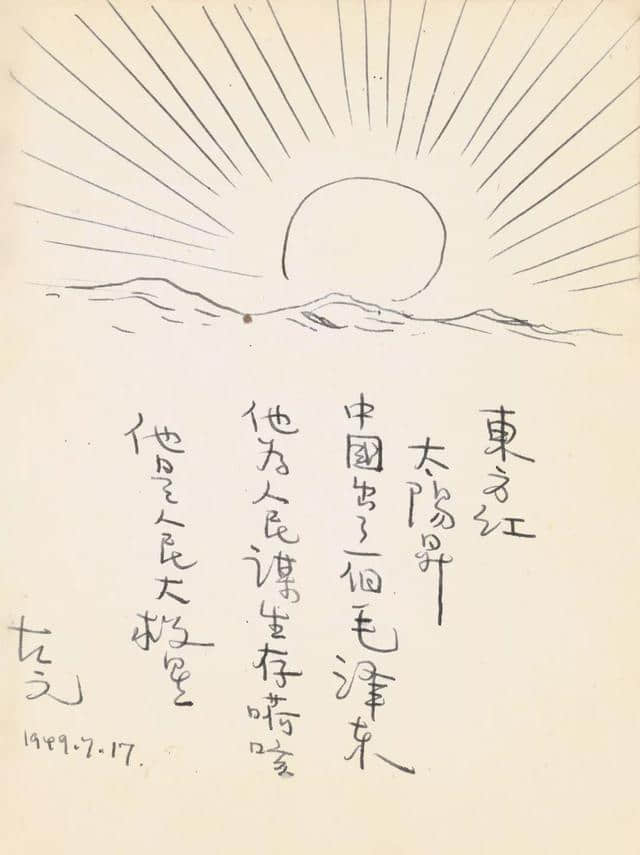 東方红
太陽昇
中國出了一個毛泽东
他为人民謀生存嗬咳
他是人民大救星
古元
1949.7.17.